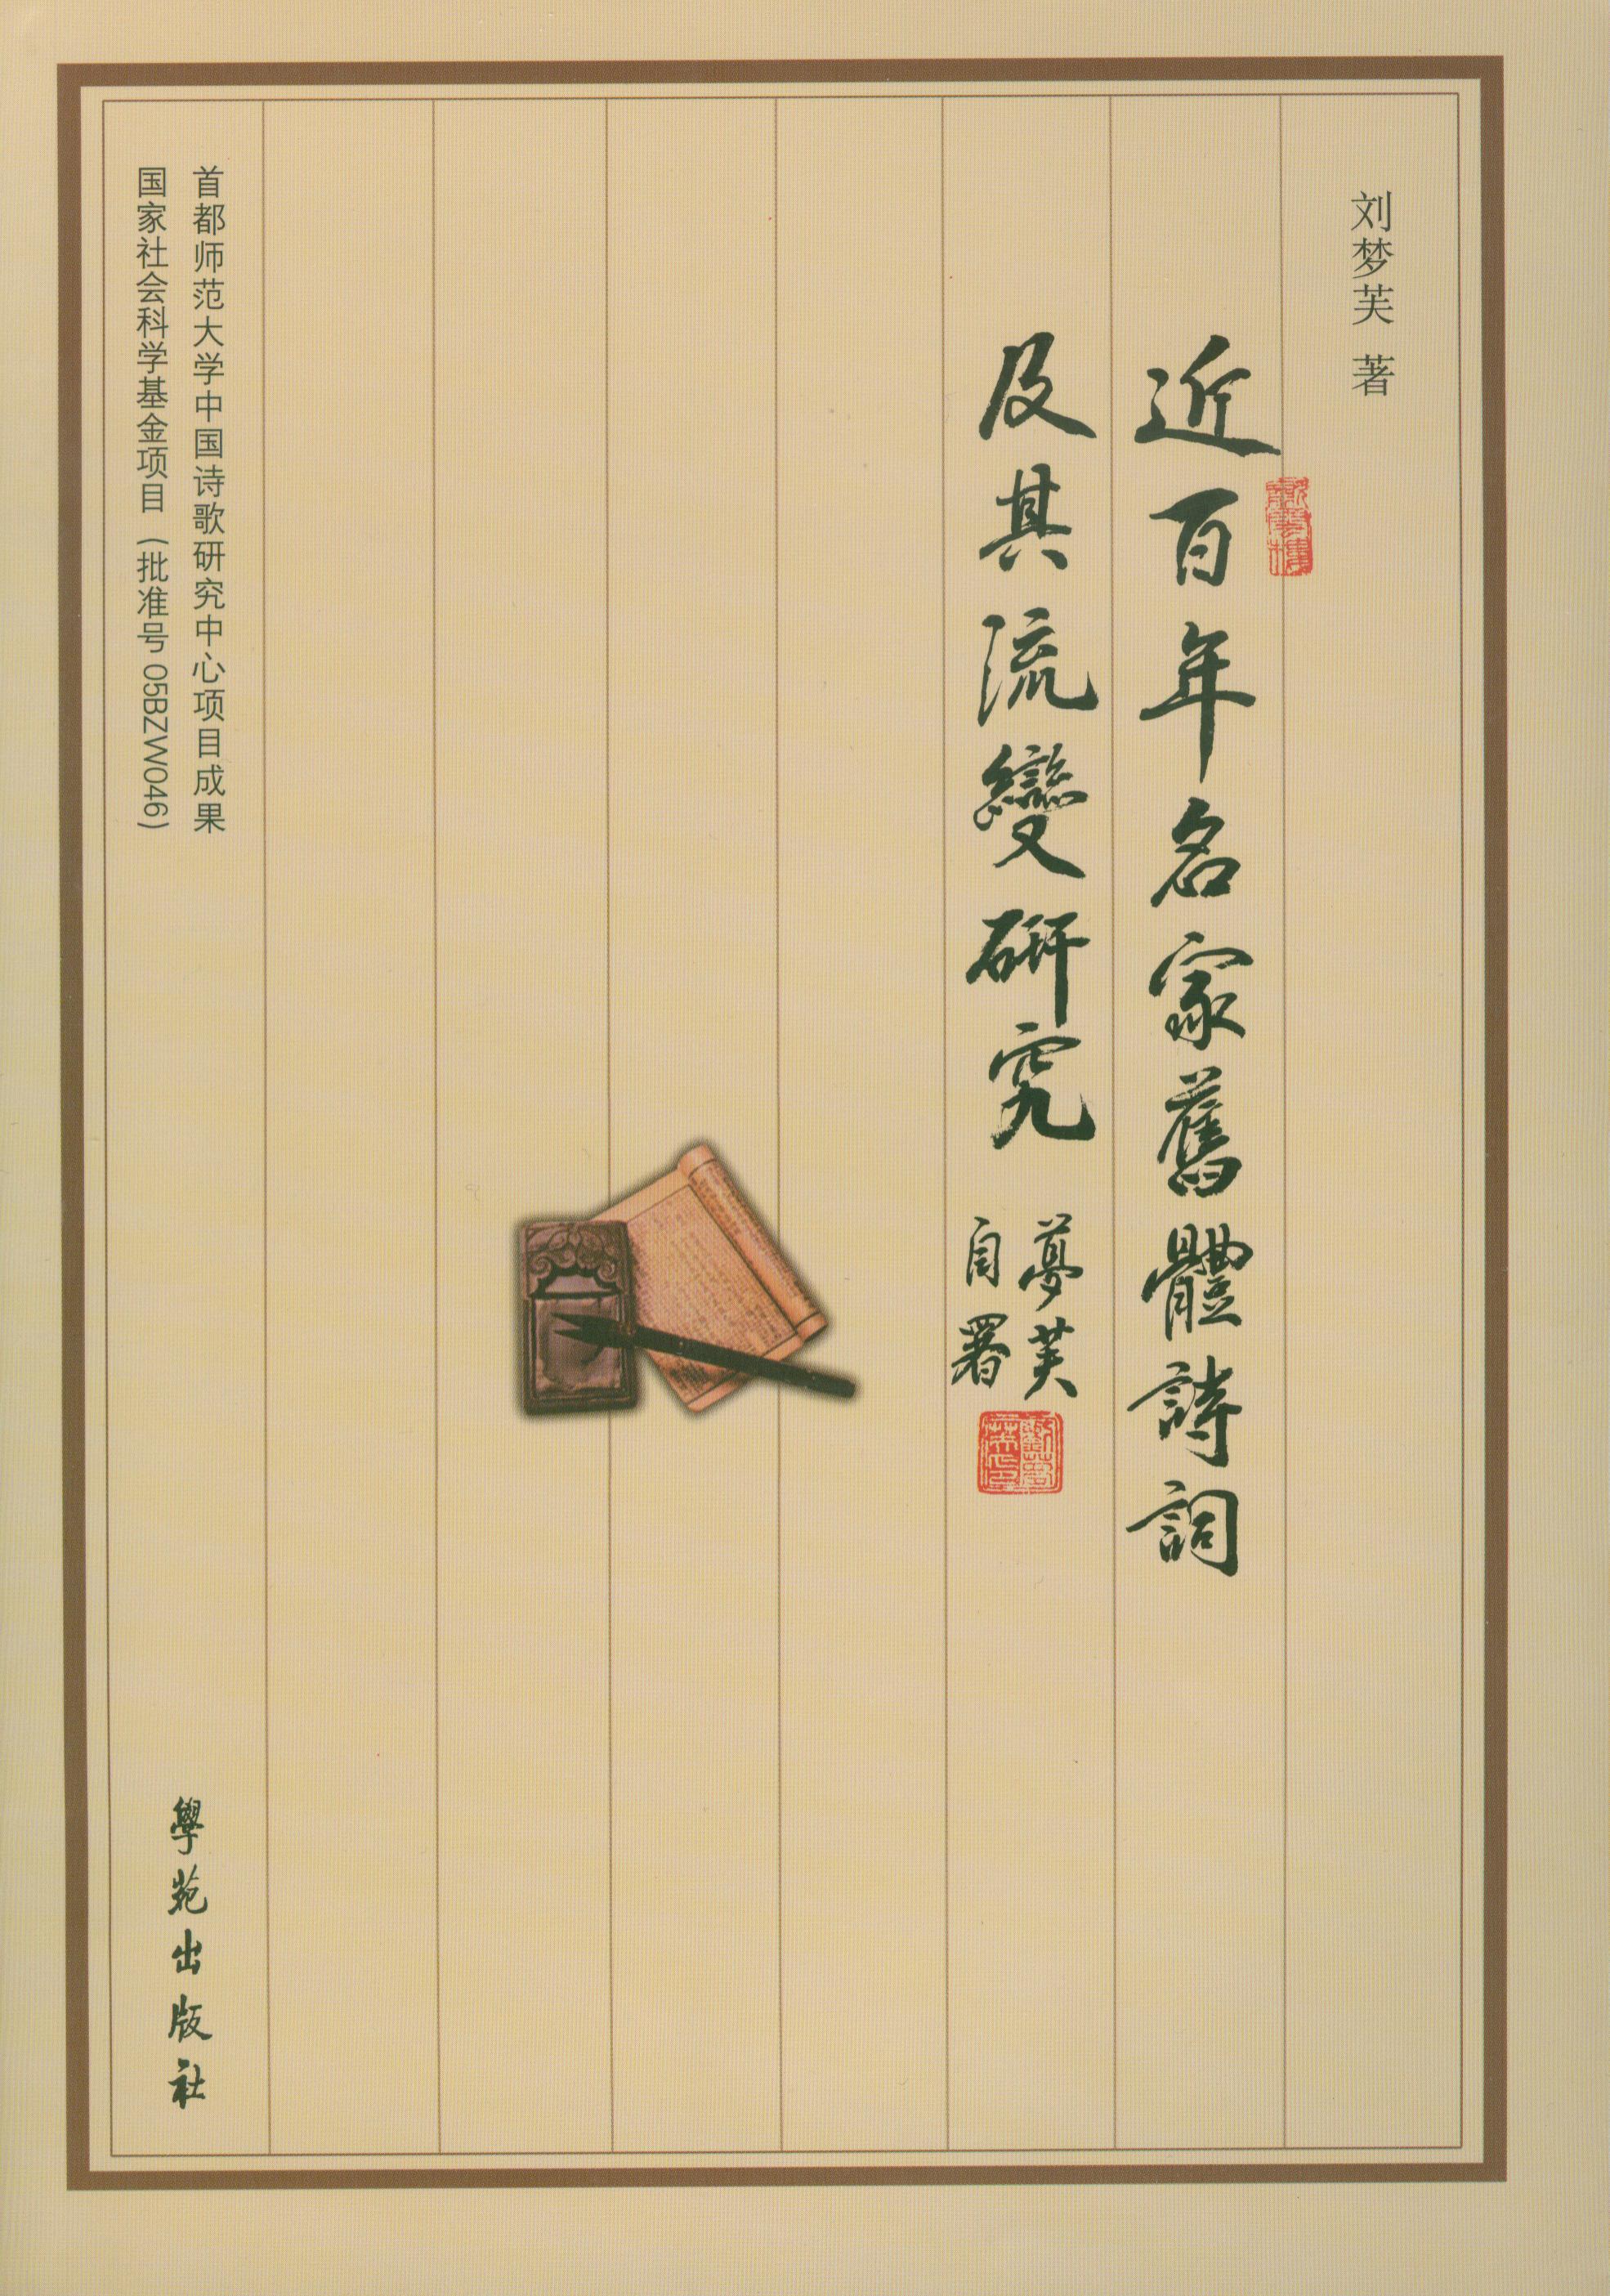 刘梦芙 著
近百年名家舊體詩詞
及其流變研究
夢芙
自署
首都师范大学中国诗歌研究中心项目成果
国家社会科学基金项目(批准号 05BZW046)
學苑出版社